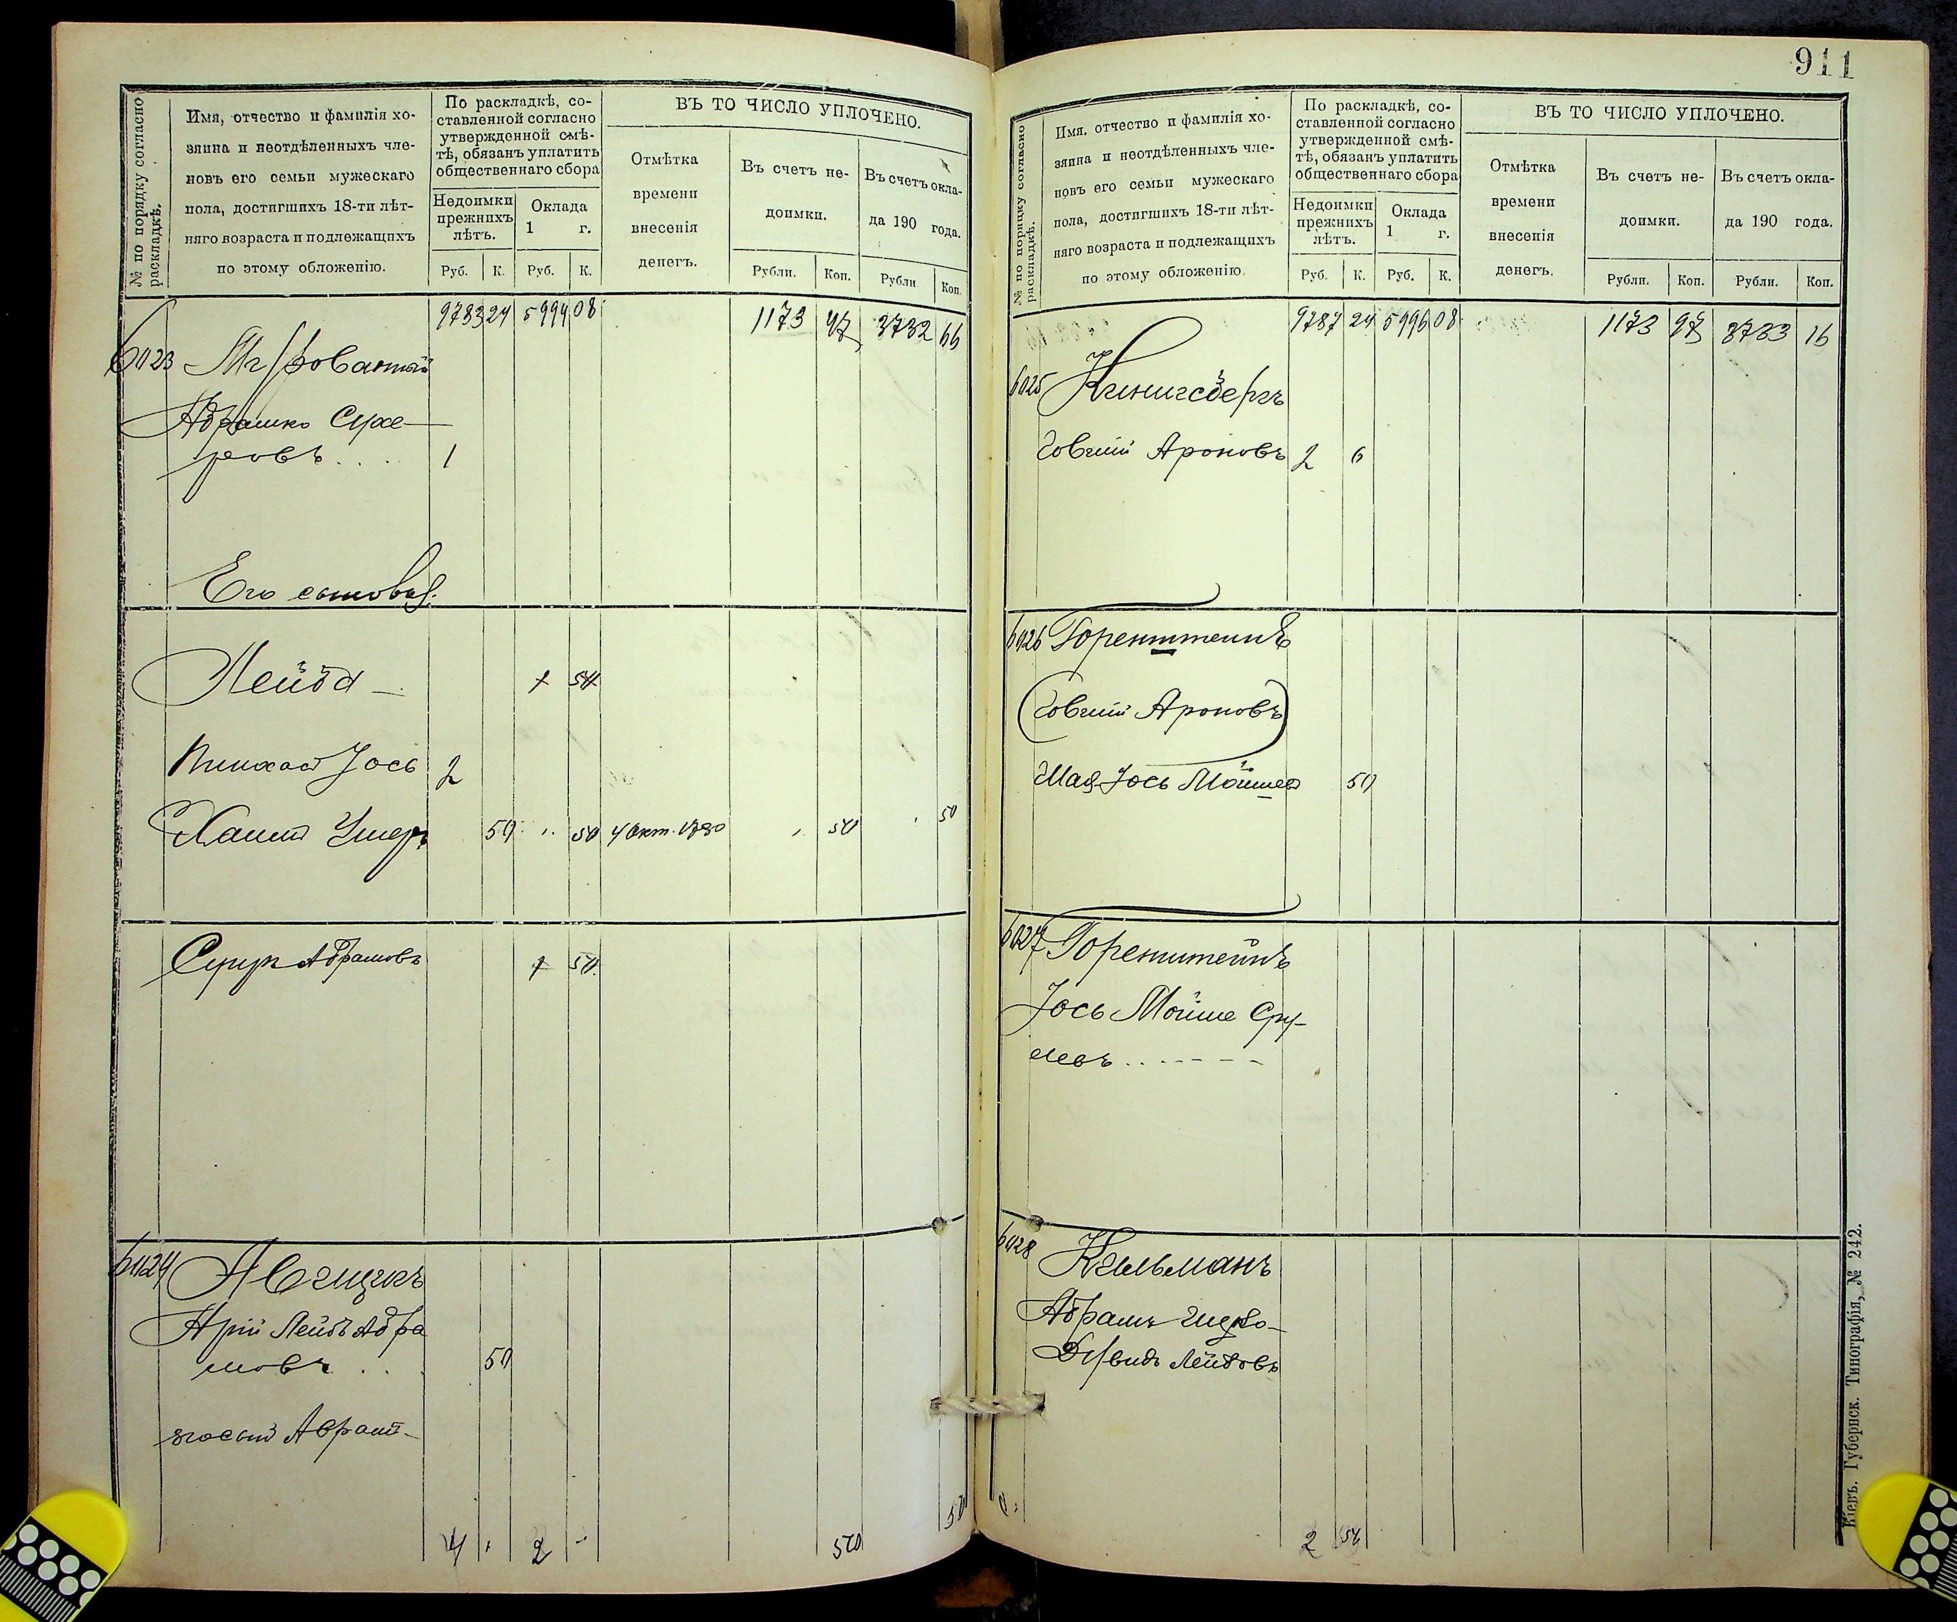 911
№ по порядку согласно раскладкѣ.
Имя, отчество и фамилія хо-
зяина и неотдѣленныхъ чле-
новъ его семьи мужескаго
пола, достигшихъ 18-ти лѣт-
няго возраста и подлежащихъ
по этому обложенію.
По раскладкѣ, со-
ставленной согласно
утвержденной смѣ-
тѣ, обязанъ уплатить
общественнаго сбора
Недоимки
прежнихъ
лѣтъ.
Оклада
1 г.
Руб. К. Руб. К.
ВЪ ТО ЧИСЛО УПЛОЧЕНО.
Отмѣтка
времени
внесенія
денегъ.
Въ счетъ не-
доимки.
Въ счетъ окла-
да 190 года.
Рубли. Коп. Рубли Коп.
9783 24 5994 08 1173 47 3732 66
6023
Абрашко Сухе-
ровъ . . . 1
Его сыновья:
Лейба — 1 50
Пинхас Іось 2
Хаим Ушеръ 50 50 4 Окт. 50 50
Абрамовъ 1 50
6024
Арій Лейбъ Абра
мовъ . . . 50
4 2 50 50
№ по порядку согласно раскладкѣ.
Имя. отчество и фамилія хо-
зяина и неотдѣленныхъ чле-
новъ его семьи мужескаго
пола, достигшихъ 18-ти лѣт-
няго возраста и подлежащихъ
по этому обложенію.
По раскладкѣ, со-
ставленной согласно
утвержденной смѣ-
тѣ, обязанъ уплатить
общественнаго сбора
Недоимки
прежнихъ
лѣтъ.
Оклада
1 г.
Руб. К. Руб. К.
ВЪ ТО ЧИСЛО УПЛОЧЕНО.
Отмѣтка
времени
внесенія
денегъ.
Въ счетъ не-
доимки.
Въ счетъ окла-
да 190 года.
Рубли. Коп. Рубли. Коп.
9787 24 5996 08 1173 97 3733 16
6025 Кинигсбергъ
Говший Ароновъ 2 6
6026 Горенштеинъ
(Говший Ароновъ)
Шая-Іось Мойшев 50
6027 Горенштейнъ
Іось Мойше Сру-
левъ . . - - - -
6028 Кельманъ
Абрамъ Ицко-
Дувидъ Лейбовъ
2 56
Кіевъ. Губернск. Типографія, № 242.